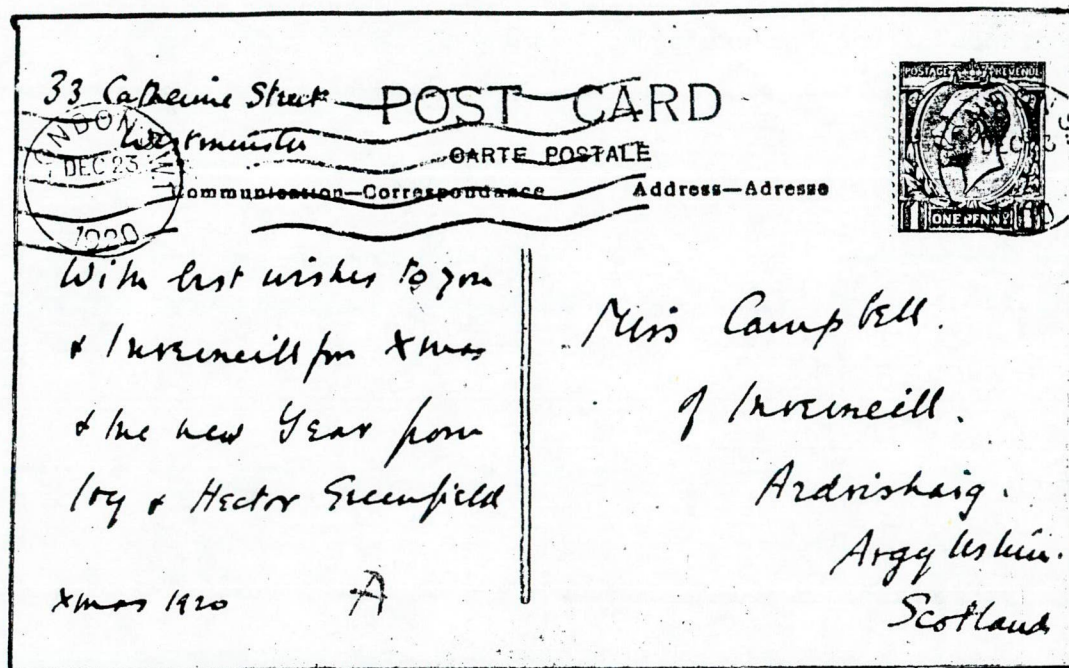 33 Catherine Street
Westminster
POST CARD
CARTE POSTALE
Communication—Correspondance
Address—Adresse
LONDON
DEC 23
1920
POSTAGE REVENUE
ONE PENNY
With best wishes to you
& Inverneill for Xmas
& the new Year from
& Hector Greenfield
Xmas 1920
A
Miss Campbell.
of Inverneill.
Ardrishaig.
Argyllshire.
Scotland